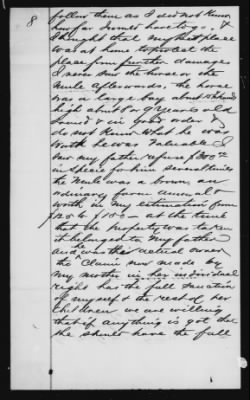 8
follow them as I did not know
how far I would have to go. &
I thought that my best place
was at home to protect the
place from further damages
I never saw the horse or the
mule afterwards, the horse
was a large bay about hands
high about 6 or 7 years old
and in good order I
do not know what he was
worth he was valuable I
saw my father refuse $300
in specie for him several times
the mule was a brown, an
ordinary farm animal &
worth in my estimation from
$125 to $150 - at the time
that the property was taken
it belonged to my father
and was their actual owner
the claim now made by
my mother in her individual
right has the full sanction
of myself & the rest of her
children we are willing
that if anything is got that
she should have the full